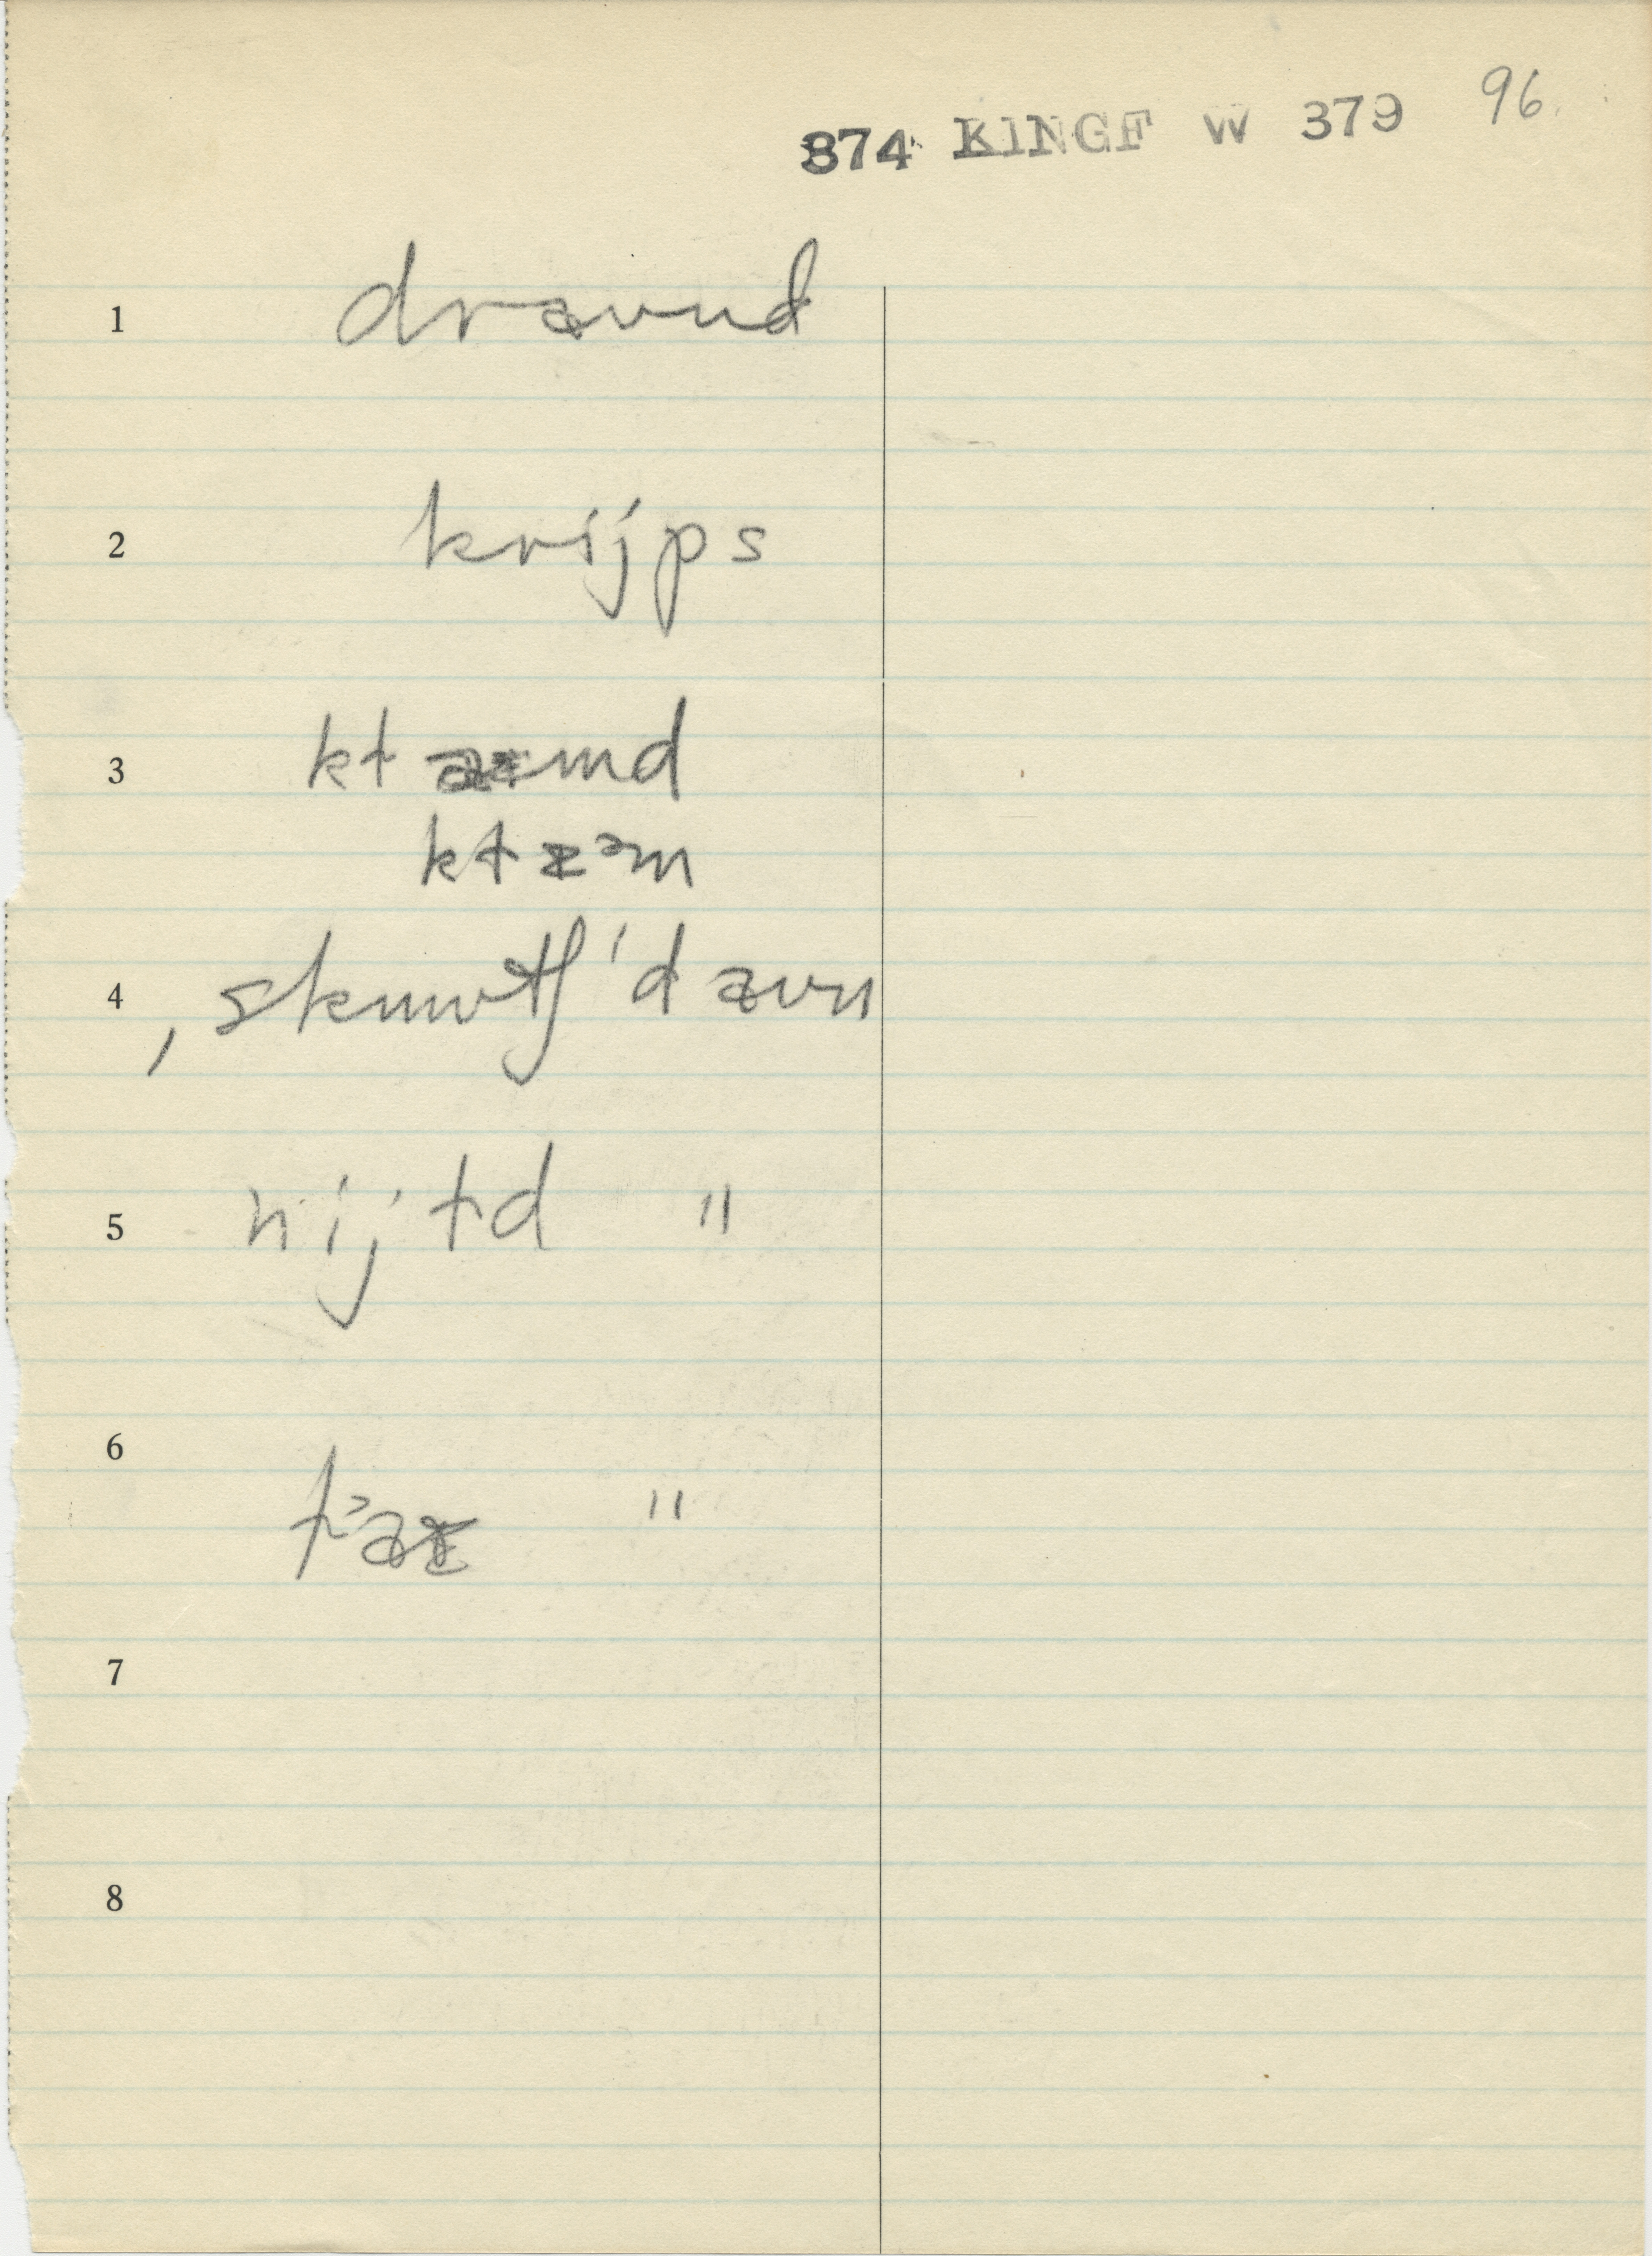 874 KINGF W 379 96
1 drævnd
2 krijps
3 kt md
ktzᵊm
4 ˌskuwtʃ ˈd ævn
5 nijtd "
6 "
7
8